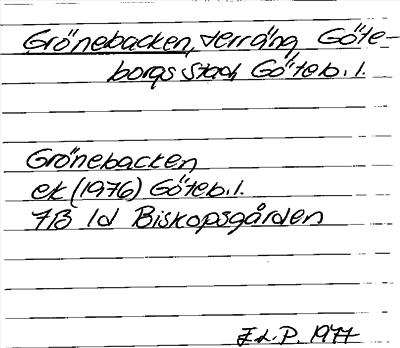 Grönebacken, terräng Göte-
borgs stad Göteb. l.
Grönebacken
ek (1976) Göteb. l.
7B 1d Biskopsgården
F.L.P. 1977